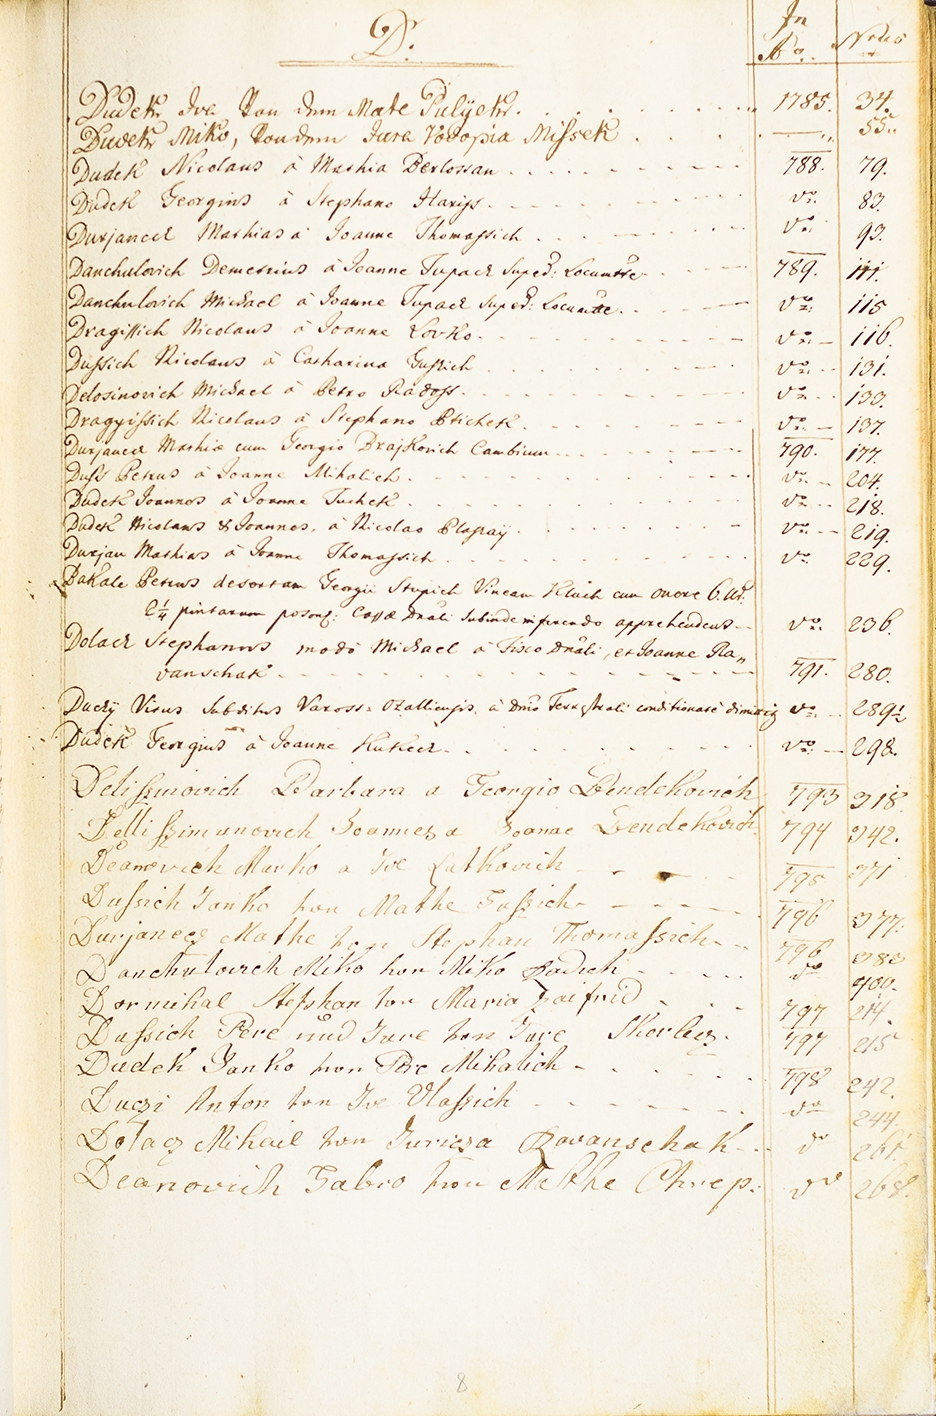 D.
In Ao. Nrus
Dudek Ive Von dem Mate Pulyek. 1785. 34.
Dudek Miko, Von dem Jura Vodopia Missek — 55.
Dudek Nicolaus à Mathia Berlossan 788. 79.
Dudek Georgius à Stephano Hariss. do. 83.
Durjancel Mathias à Joanne Thomassich do. 93.
Danchulovich Demetrius à Joanne Tupack Suped: Locumtte 789. 111.
Danchulovich Michael à Joanne Tupack Suped: Locumtte. do. 115
Dragissich Nicolaus à Joanne Lovko. do. 116.
Dussich Nicolaus à Catharina Gussich do. 131.
Delosinovich Michael à Petro Radoss. do. 133.
Dragyissich Nicolaus à Stephano Btichek. do. 137.
Durjancel Mathiæ cum Georgio Drajkovich Cambium 790. 177.
Duss Petrus à Joanne Mihalich. do. 204.
Dudek Joannes à Joanne Tuchek. do. 218.
Dudek Nicolaus & Joannes, à Nicolao Plassay. do. 219.
Durjan Mathias à Joanne Thomassich. do. 229.
Dakale Petrus desertam Georgii Stepich Vineam Kluch cum onere 6. Ur.
2 1/4 pintarum poson: Cassæ Dnali subinde apprehendens do. 236.
Dolack Stephanus modo Michael à Fisco Dnali, et Joanne Ra„
vanschak 791. 280.
Duczy Vitus Subditus Vaross-Ozalliensis à Dno Terrestrali conditionate do. 289 1/2
Dudek Georgius à Joanne Kukecz. do. 298.
Delissinovich Barbara a Georgio Bendekovich 793 318
Dellissimunovich Joannes a Joanne Bendekovich 794 342.
Deanovich Marko a Ive Latkovich 795 371
Dussich Janko von Mathe Gussich 796 377.
Durjanecz Mathe von Stephan Thomassich 796 383
Danchulovich Miko von Miko Radich do 400.
Dormihal Stephan von Maria Zaifrid 797 214.
Dussich Pere und Jure von Jure Skerlecz. 797 215
Dudek Janko von Pere Mihalich 798 242.
Duczi Anton von Ive Vlassich do 244.
Dolacz Mihail von Juricza Ravanschak do 261.
Deanovich Gabro von Mathe Chrep. do 268.
8